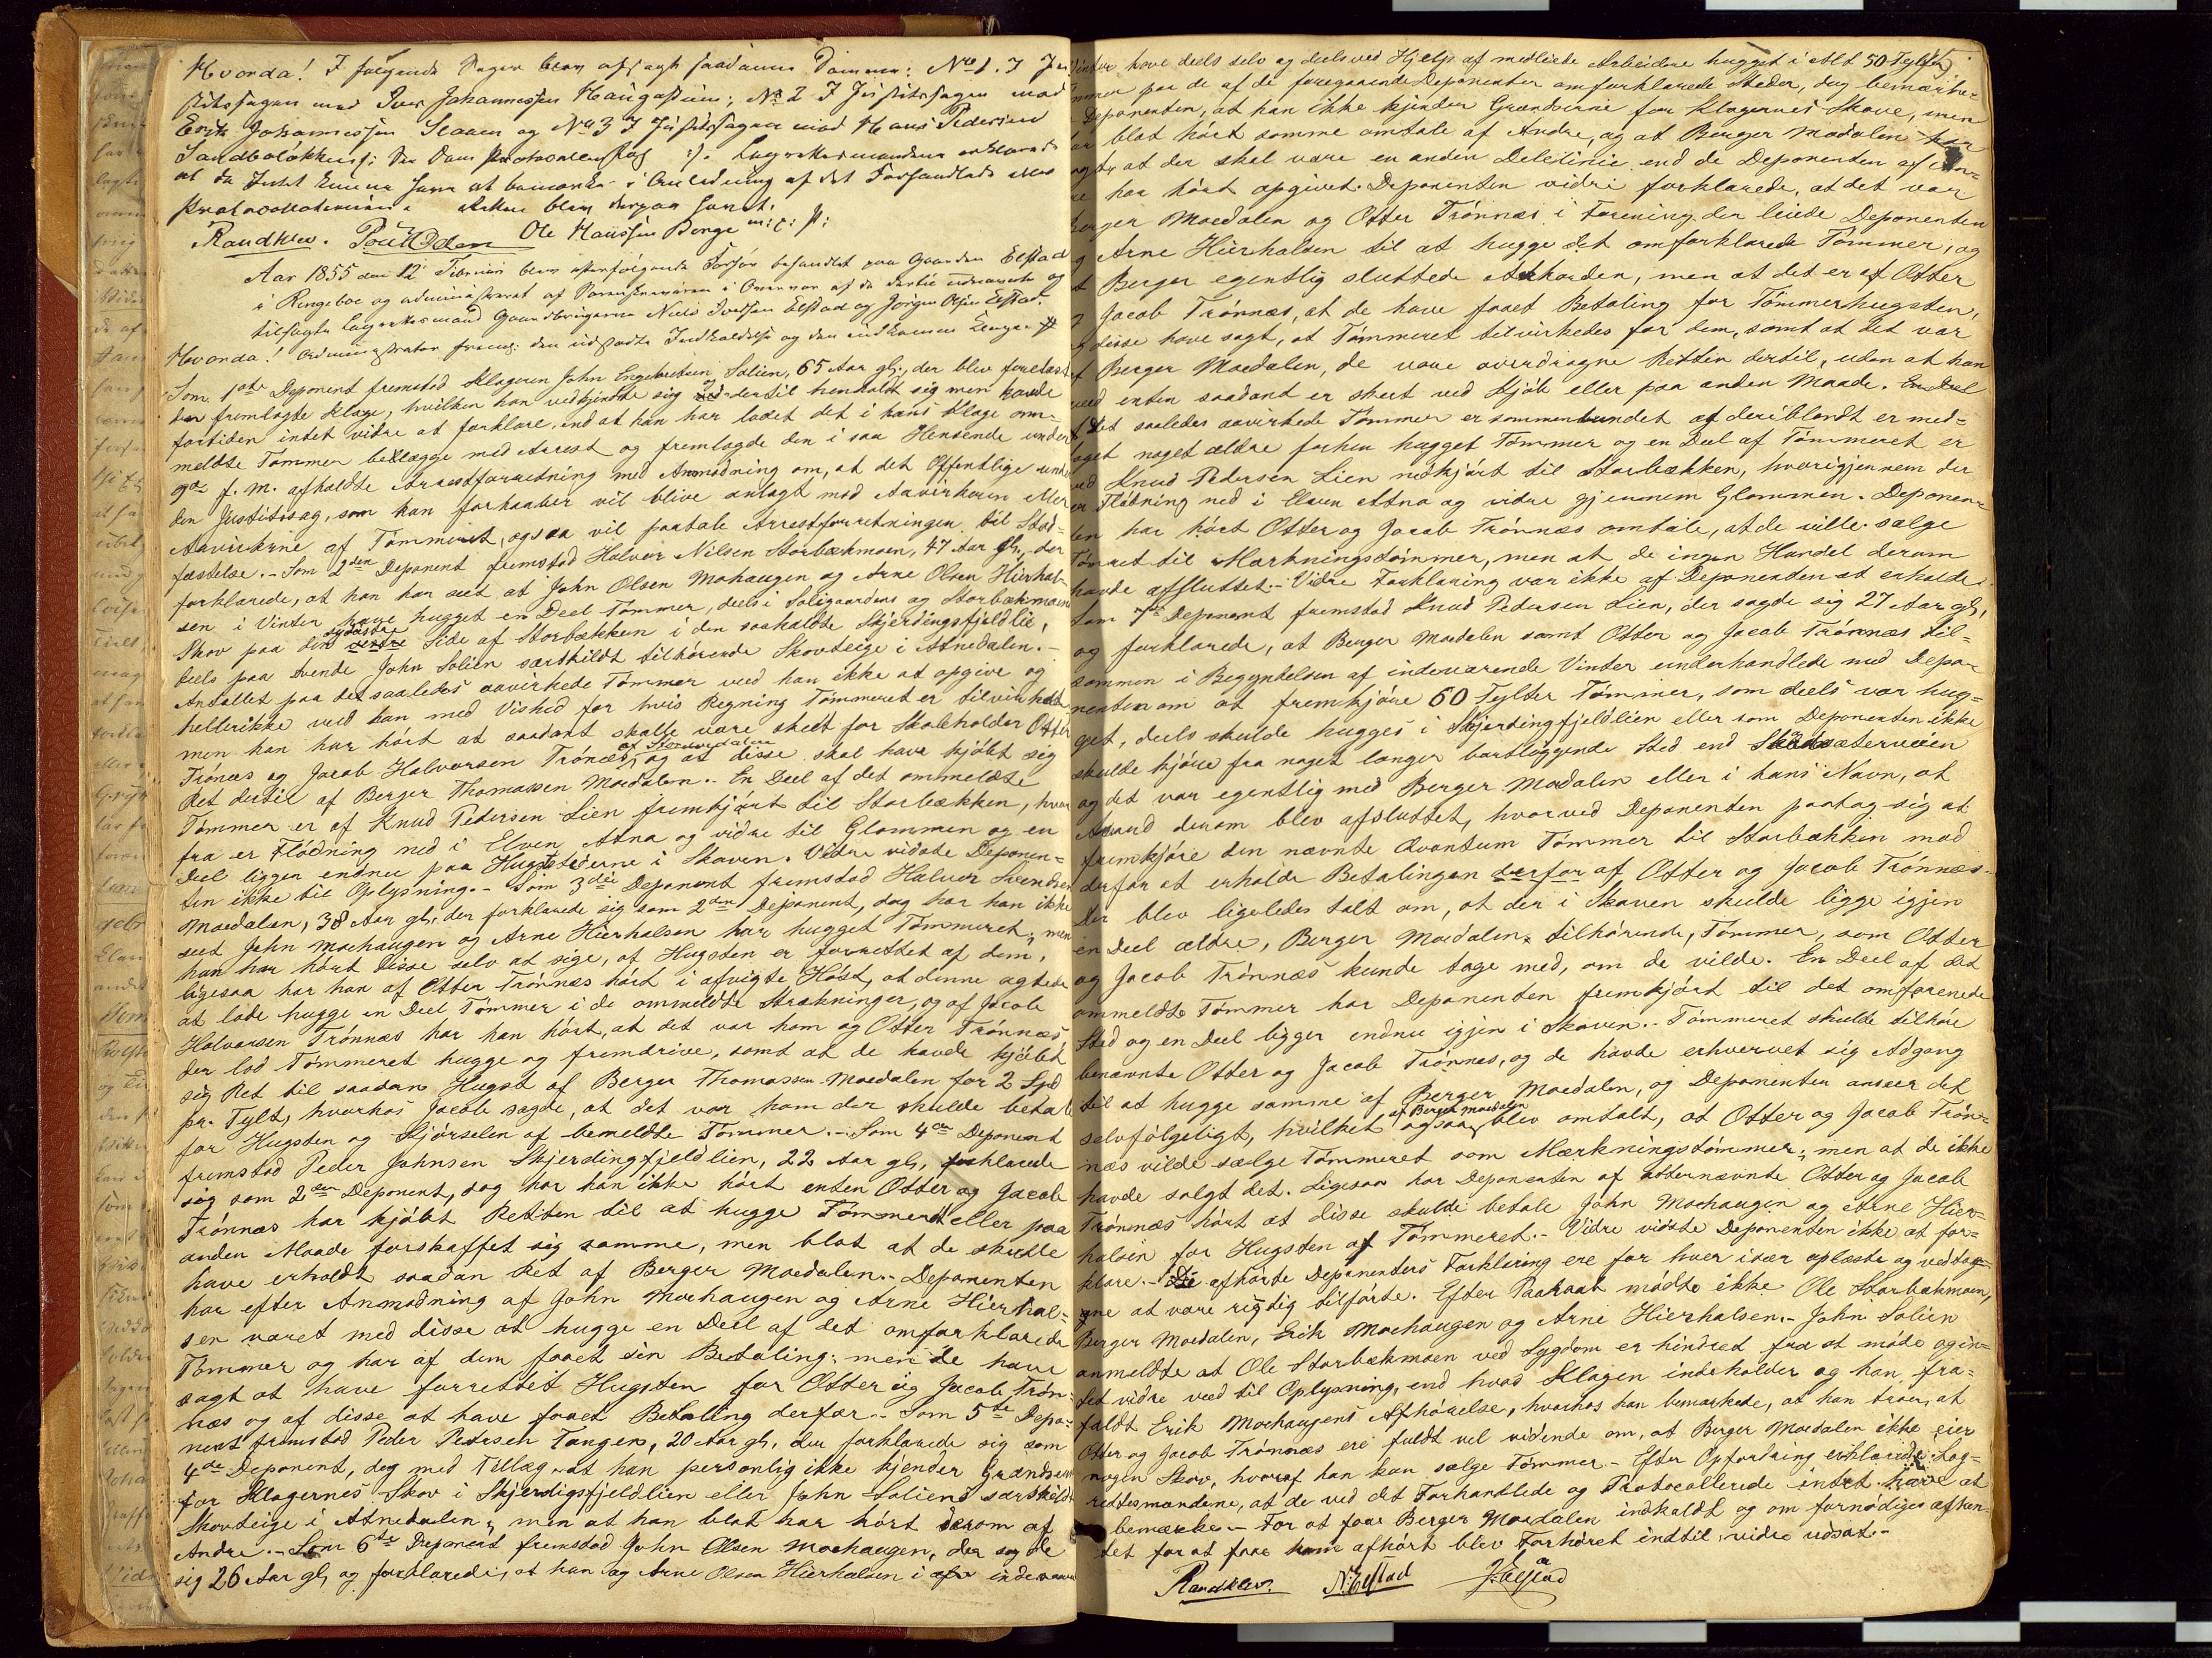 Hvorda! I følgende Sager blev afsagt saadanne Domme: No 1. I Ju
stitssagen mod Iver Johannessen Haugastuen; No 2 I Justitssagen mod
Erik Johannessen Staaen og No 3 I Justitssagen mod Hans Pedersen
Sandbolökken Laugrettesmændene erklærede
at de Intet kunne have at bemærke i Anledning af det Forhandlede eller
Protocollationen. Retten blev derpaa hævet.
Randklev. Poul Oden Ole Hanssen Berge m: f: P:
Aar 1855 den 12 Februar blev efterfølgende Forhør behandlet paa Gaarden Elstad
i Ringeboe og administreret af Sorenskriveren i Overvær af de dertil udnævnte og
tilsagte Laugrettesmænd Gaardbrugerne Niels Iversen Elstad og Jörgen Olsen Elstad.
Hvorda! Administrator freml. den udstædte Indkaldelse og den indkomne Klage
Som 1ste Deponent fremstod Klageren John Engebretsen Solien, 65 Aar gl, der blev forelæst
den fremlagte Klage, hvilken han vedkjendte sig og dertil henholdt sig men havde
fortiden intet vidre at forklare, end at han har ladet det i hans Klage om-
meldte Tømmer belægge med Arrest og fremlagde den i saa Henseende under
9de f. M. afholdte Arrestforretning med Anmodning om, at det Offentlige under
den Justitssag, som han forhaaber vil blive anlagt mod Aavirkeren eller
Aavirkerne af Tømmeret, ogsaa vil paatale Arrestforretningen til Stad-
fæstelse. - Som 2den Deponent fremstod Halvor Nilsen Storbækmoen, 47 Aar gl, der
forklarede, at han har seet at John Olsen Mohaugen og Arne Olsen Hierhal-
sen i Vinter have hugget en Deel Tømmer, deels i Soliegaardens og Storbækmoens
Skov paa den sydöstre Side af Storbækken i den saakaldte Skjerdingsfjeldlie,
deels paa tvende John Solien særskildt tilhørende Skovteige i Atnedalen. -
Antallet paa det saaledes aavirkede Tømmer veed han ikke at opgive og
hellerikke veed han med Vished for hvis Regning Tømmeret er tilvirket
men han har hört at saadant skulle være skeet for Skoleholder Otter
Trønnes og Jacob Halvorsen Trønnes, og at disse skal have kjöbt sig
Ret dertil af Berger Thomassen Moedalen. - En Deel af det ommeldte
Tømmer er af Knud Pedersen Lien fremkjört til Storbækken, hvor
fra er Flödning ned i Elven Atna og vidre til Glommen og en
Deel ligger endnu paa Hugstederne i Skoven. Vidre vidste Deponen-
ten ikke til Oplysning. - Som 3die Deponent fremstod Halvor Svendsen
Moedalen, 38 Aar gl, der forklarede sig som 2den Deponent, dog har han ikke
seet John Moehaugen og Arne Hierhalsen har hugget Tømmeret, men
han har hört disse selv at sige, at Hugsten er forrettet af dem,
ligesaa har han af Otter Trønnæs hört i afvigte Höst, at denne agtede
at lade hugge en Deel Tømmer i de ommeldte Strækninger, og af Jacob
Halvorsen Trönnæs har han hört, at det var ham og Otter Trönnæs
der lod Tømmeret hugge og fremdrive, samt at de havde kjöbt
sig Ret til saadan Hugst af Berger Thomassen Moedalen for 2 Spd
pr. Tylt, hvorhos Jacob sagde, at det var ham der skulde betale
for Hugsten og Kjörselen af bemeldte Tømmer. - Som 4de Deponent
fremstod Peder Johnsen Skjerdingfjeldlien, 22 Aar gl, forklarede
sig som 2den Deponent, dog har han ikke hört enten Otter og Jacob
Trönnæs har kjöbt Retten til at hugge Tømmeret eller paa
anden Maade forskaffet sig samme, men blot at de skulle
have erholdt saadan Ret af Berger Moedalen. - Deponenten
har efter Anmodning af John Moehaugen og Arne Hierhal-
sen været med disse at hugge en Deel af det omforklarede
Tømmer og har af dem faaet sin Betaling, men de have
sagt at have forrettet Hugsten for Otter og Jacob Trön-
næs og af disse at have faaet Betaling derfor. - Som 5te Depo-
nent fremstod Peder Pedersen Tangen, 20 Aar gl, der forklarede sig som
4de Deponent, dog med Tillæg at han personlig ikke kjender Grændserne
for Klagernes Skov i Skjerdigsfjeldlien eller John Soliens særskildte
Skovteige i Atnedalen, men at han blot har hört derom af
Andre. - Som 6te Deponent fremstod John Olsen Moehaugen, der sagde
sig 26 Aar gl, og forklarede, at han og Arne Olsen Hierhalsen i indeværende
Vinter have deels selv og deels ved Hjelp af medleiede Arbeidere hugget i Alt 50 Tylfter
Tømmer paa de af de foregaaende Deponenter omforklarede Steder, dog bemærke-
Deponenten, at han ikke kjender Grændserne for Klagernes Skove, men
har blot hört samme omtale af Andre, og at Berger Moedalen har
sagt, at der skal være en anden Delelinie end de Deponenten af An-
dre har hört opgivet. Deponenten vidre forklarede, at det var
Berger Moedalen og Otter Trönnæs i Forening der leiede Deponenten
og Arne Hierhalsen til at hugge det omforklarede Tømmer, og
at Berger egentlig sluttede Akkorden, men at det er af Otter
og Jacob Trönnæs, at de have faaet Betaling for Tømmerhugsten,
og disse have sagt, at Tømmeret tilvirkedes for dem, samt at det var
af Berger Moedalen, de vare overdragne Retten dertil, uden at han
veed enten saadant er skeet ved Kjöb eller paa anden Maade. En Deel
af det saaledes aavirkede Tømmer er sammenbundet af deriblandt er med-
taget noget ældre forhen hugget Tømmer og en Deel af Tømmeret er
ved Knud Pedersen Lien nedkjört til Storbækken, hvorigjennem der
er Flödning ned i Elven Atna og vidre gjennem Glommen. Deponen-
ten har hört Otter og Jacob Trönnæs omtale, at de ville sælge
Tømmeret til Mærkningstømmer, men at de ingen Handel derom
havde afsluttet. - Vidre Forklaring var ikke af Deponenten at erholde.
Som 7de Deponent fremstod Knud Pedersen Lien, der sagde sig 27 Aar gl,
og forklarede, at Berger Moedalen samt Otter og Jacob Trönnæs til-
sammen i Begyndelsen af indeværende Vinter underhandlede med Depo-
nenten om at fremkjöre 60 Tylfter Tømmer, som deels var hug-
get, deels skulde hugges i Skjerdingfjeldlien eller som Deponenten ikke
skulde kjöre fra noget længer bortliggende Sted end
og det var egentlig med Berger Moedalen eller i hans Navn, at
Accord derom blev afsluttet, hvorved Deponenten paatog sig at
fremkjöre den nævnte Qvantum Tømmer til Storbækken mod
derfor at erholde Betalingen derfor af Otter og Jacob Trönnæs.
Der blev ligeledes talt om, at der i Skoven skulde ligge igjen
en Deel ældre, Berger Moedalen tilhörende, Tømmer, som Otter
og Jacob Trönnæs kunde tage med, om de vilde. En Deel af det
ommeldte Tømmer har Deponenten fremkjört til det omforenede
Sted og en Deel ligger endnu igjen i Skoven. - Tømmeret skulde tilhöre
benævnte Otter og Jacob Trönnæs, og de havde erhvervet sig Adgang
til at hugge samme af Berger Moedalen, og Deponenten anseer det
selvfölgeligt, hvilket ogsaa af Berger Moedalen blev omtalt, at Otter og Jacob Trön-
næs vilde sælge Tømmeret som Mærkningstømmer, men at de ikke
havde solgt det. Ligesaa har Deponenten af atternævnte Otter og Jacob
Trönnæs hört at disse skulde betale John Moehaugen og Arne Hier-
halsen for Hugsten af Tømmeret. - Vidre vidste Deponenten ikke at for-
klare. - De afhörte Deponenters Forklaring ere for hver især oplæste og vedtag-
ne at være rigtig tilförte. Efter Paaraab mödte ikke Ole Storbækmoen,
Berger Moedalen, Erik Moehaugen og Arne Hierhalsen. - John Solien
anmeldte at Ole Storbækmoen ved Sygdom er hindret fra at möde og in-
tet vidre veed til Oplysning, end hvad Klagen indeholder og han fra-
faldt Erik Moehaugens Afhörelse, hvorhos han bemærkede, at han troer, at
Otter og Jacob Trönnæs ere fuldt vel vidende om, at Berger Moedalen ikke eier
nogen Skov, hvoraf han kan sælge Tømmer. - Efter Opfordring erklærede Lag-
rettesmændene, at de ved det Forhandlede og Protocollerede intet have at
bemærke. - For at faae Berger Moedalen indkaldt og om fornödiges afhen-
tet for at faae ham afhört blev Forhöret indtil vidre udsat. -
Randklev. N: Elstad J. Elstad